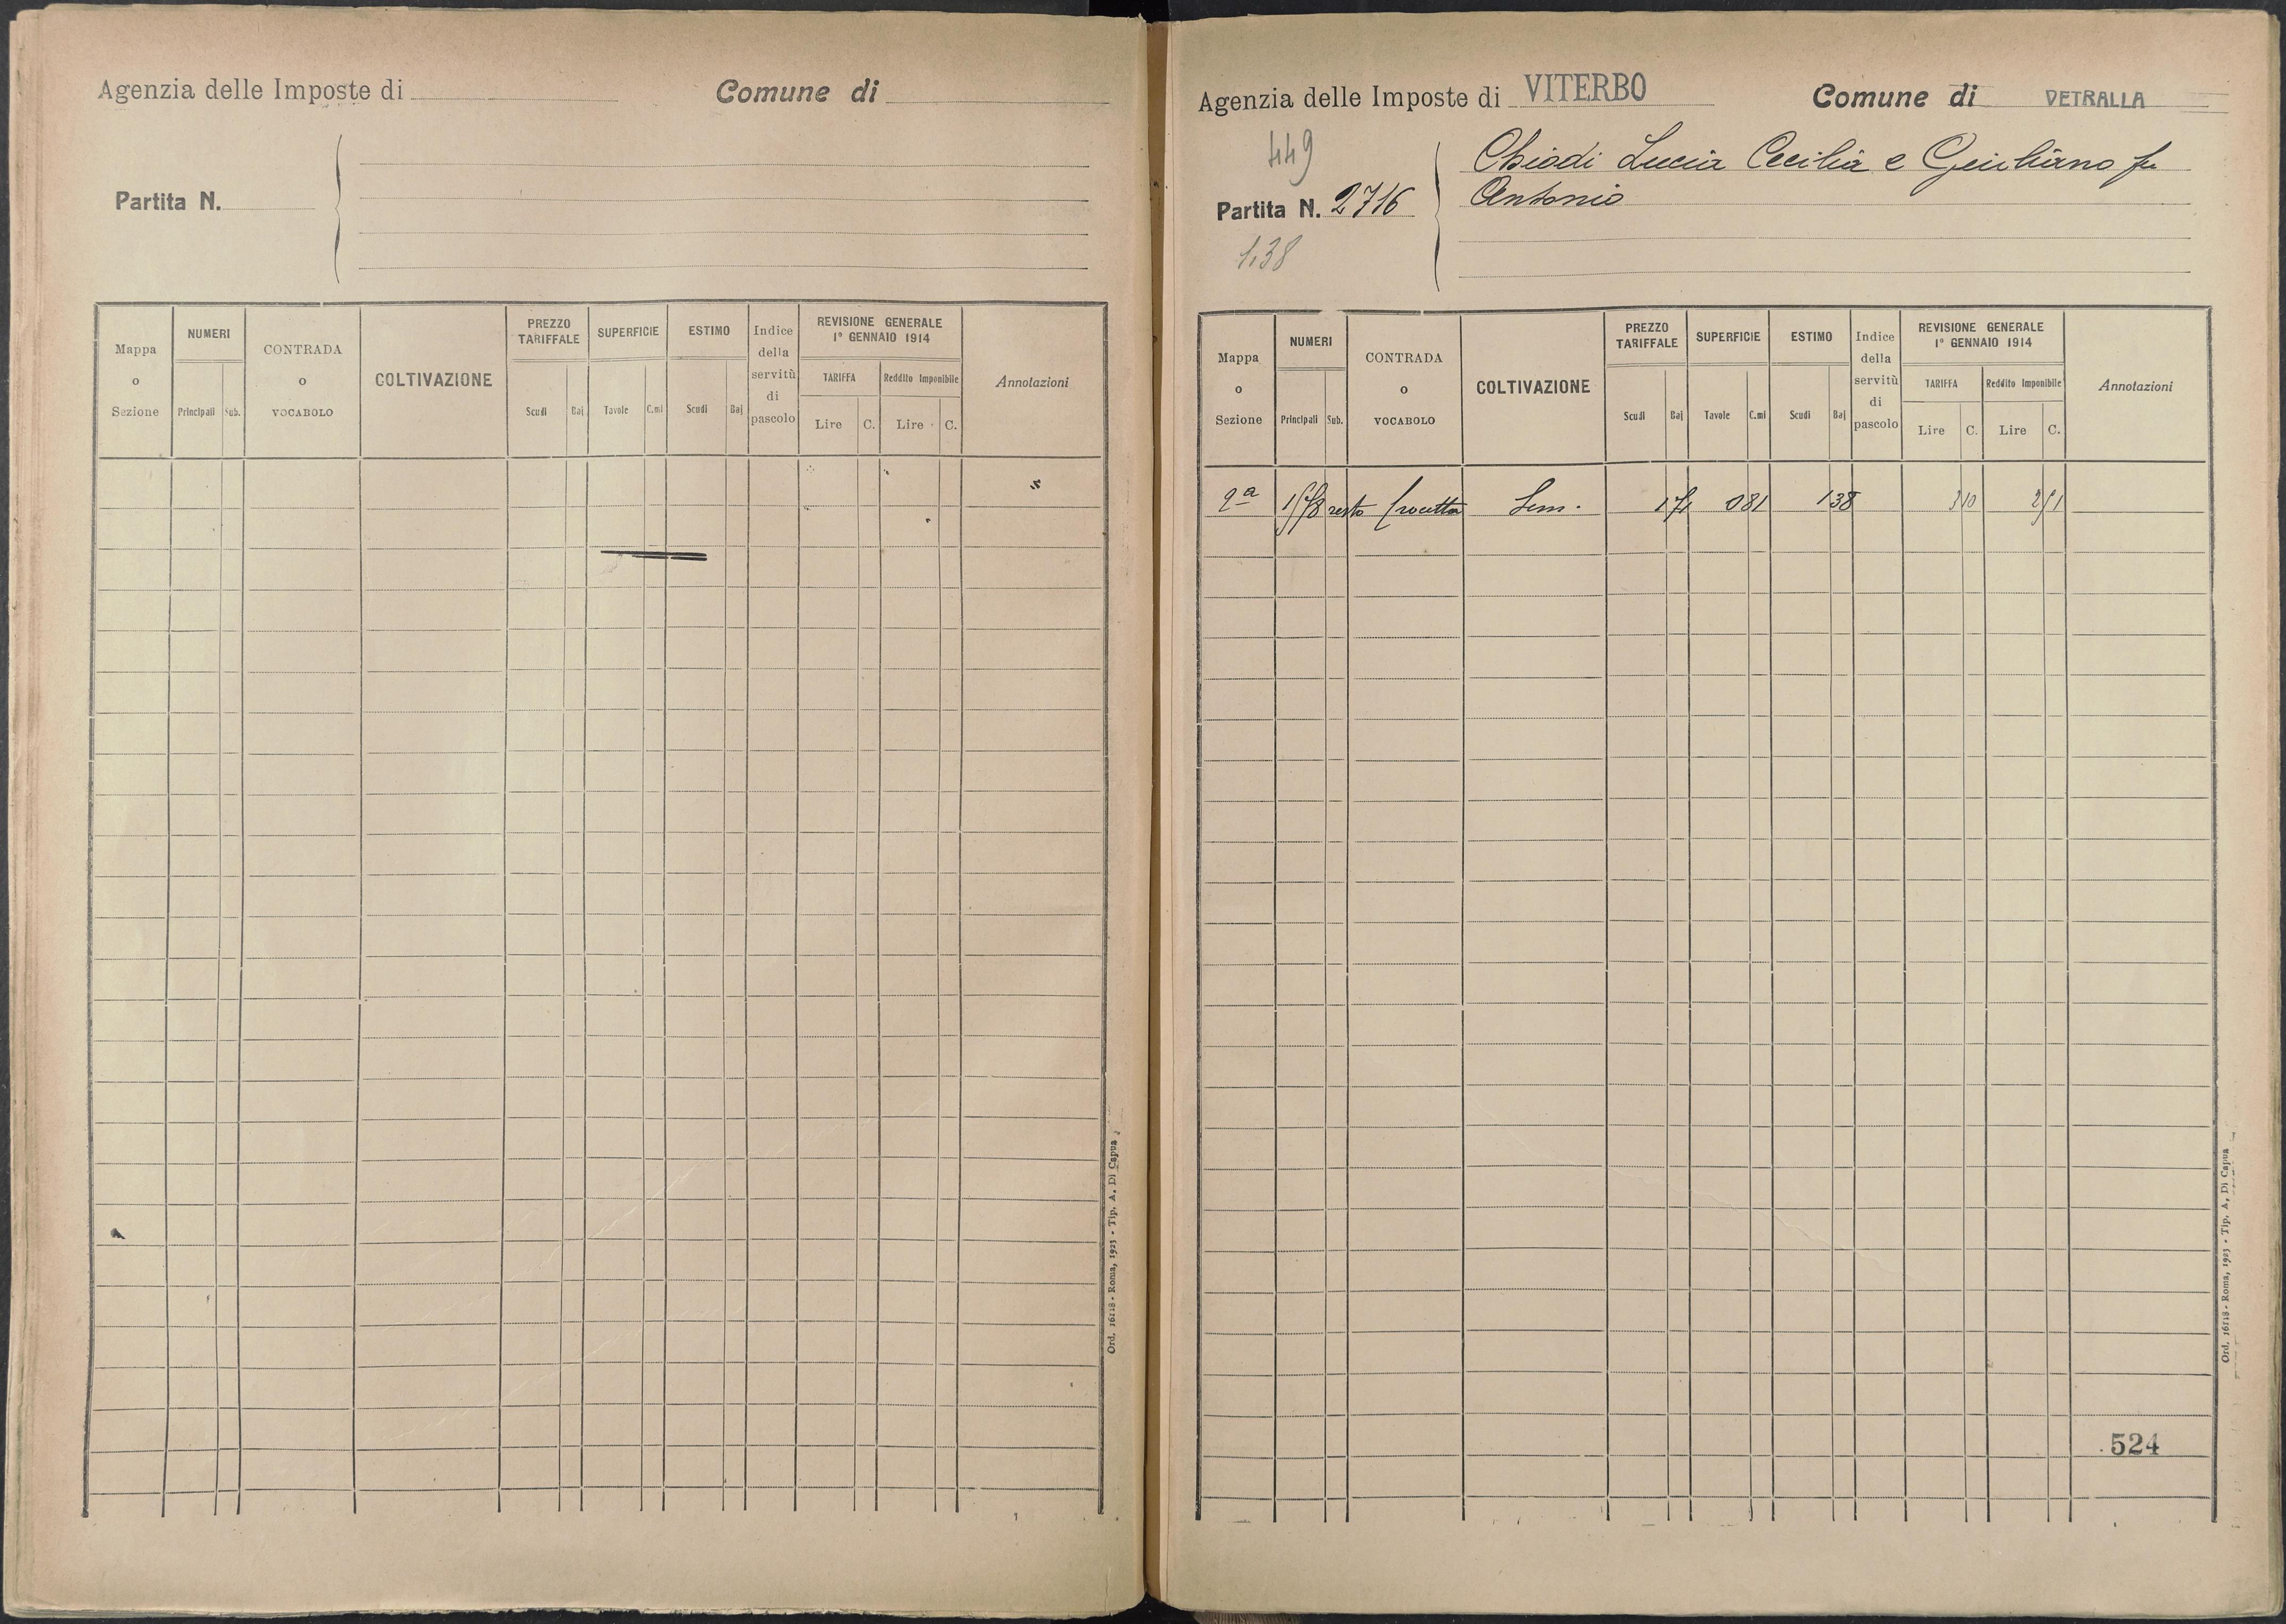 Agenzia delle Imposte di
Comune di
Partita N.
Mappa o Sezione
NUMERI
Principali
Sub.
CONTRADA o VOCABOLO
COLTIVAZIONE
PREZZO TARIFFALE
Scudi
Baj
SUPERFICIE
Tavole
C.mi
ESTIMO
Scudi
Baj
Indice della servitù di pascolo
REVISIONE GENERALE
1° GENNAIO 1914
TARIFFA
Lire
C.
Reddito Imponibile
Lire
C.
Annotazioni
Ord. 16118 - Roma, 1923 - Tip. A. Di Capua
Agenzia delle Imposte di VITERBO
Comune di VETRALLA
449
Partita N. 2716
138
Chiodi Lucia Cecilia e Giuliano fu
Antonio
Mappa o Sezione
NUMERI
Principali
Sub.
CONTRADA o VOCABOLO
COLTIVAZIONE
PREZZO TARIFFALE
Scudi
Baj
SUPERFICIE
Tavole
C.mi
ESTIMO
Scudi
Baj
Indice della servitù di pascolo
REVISIONE GENERALE
1° GENNAIO 1914
TARIFFA
Lire
C.
Reddito Imponibile
Lire
C.
Annotazioni
resto Sem. 171 081 138 310 251
524
Ord. 16118 - Roma, 1923 - Tip. A. Di Capua